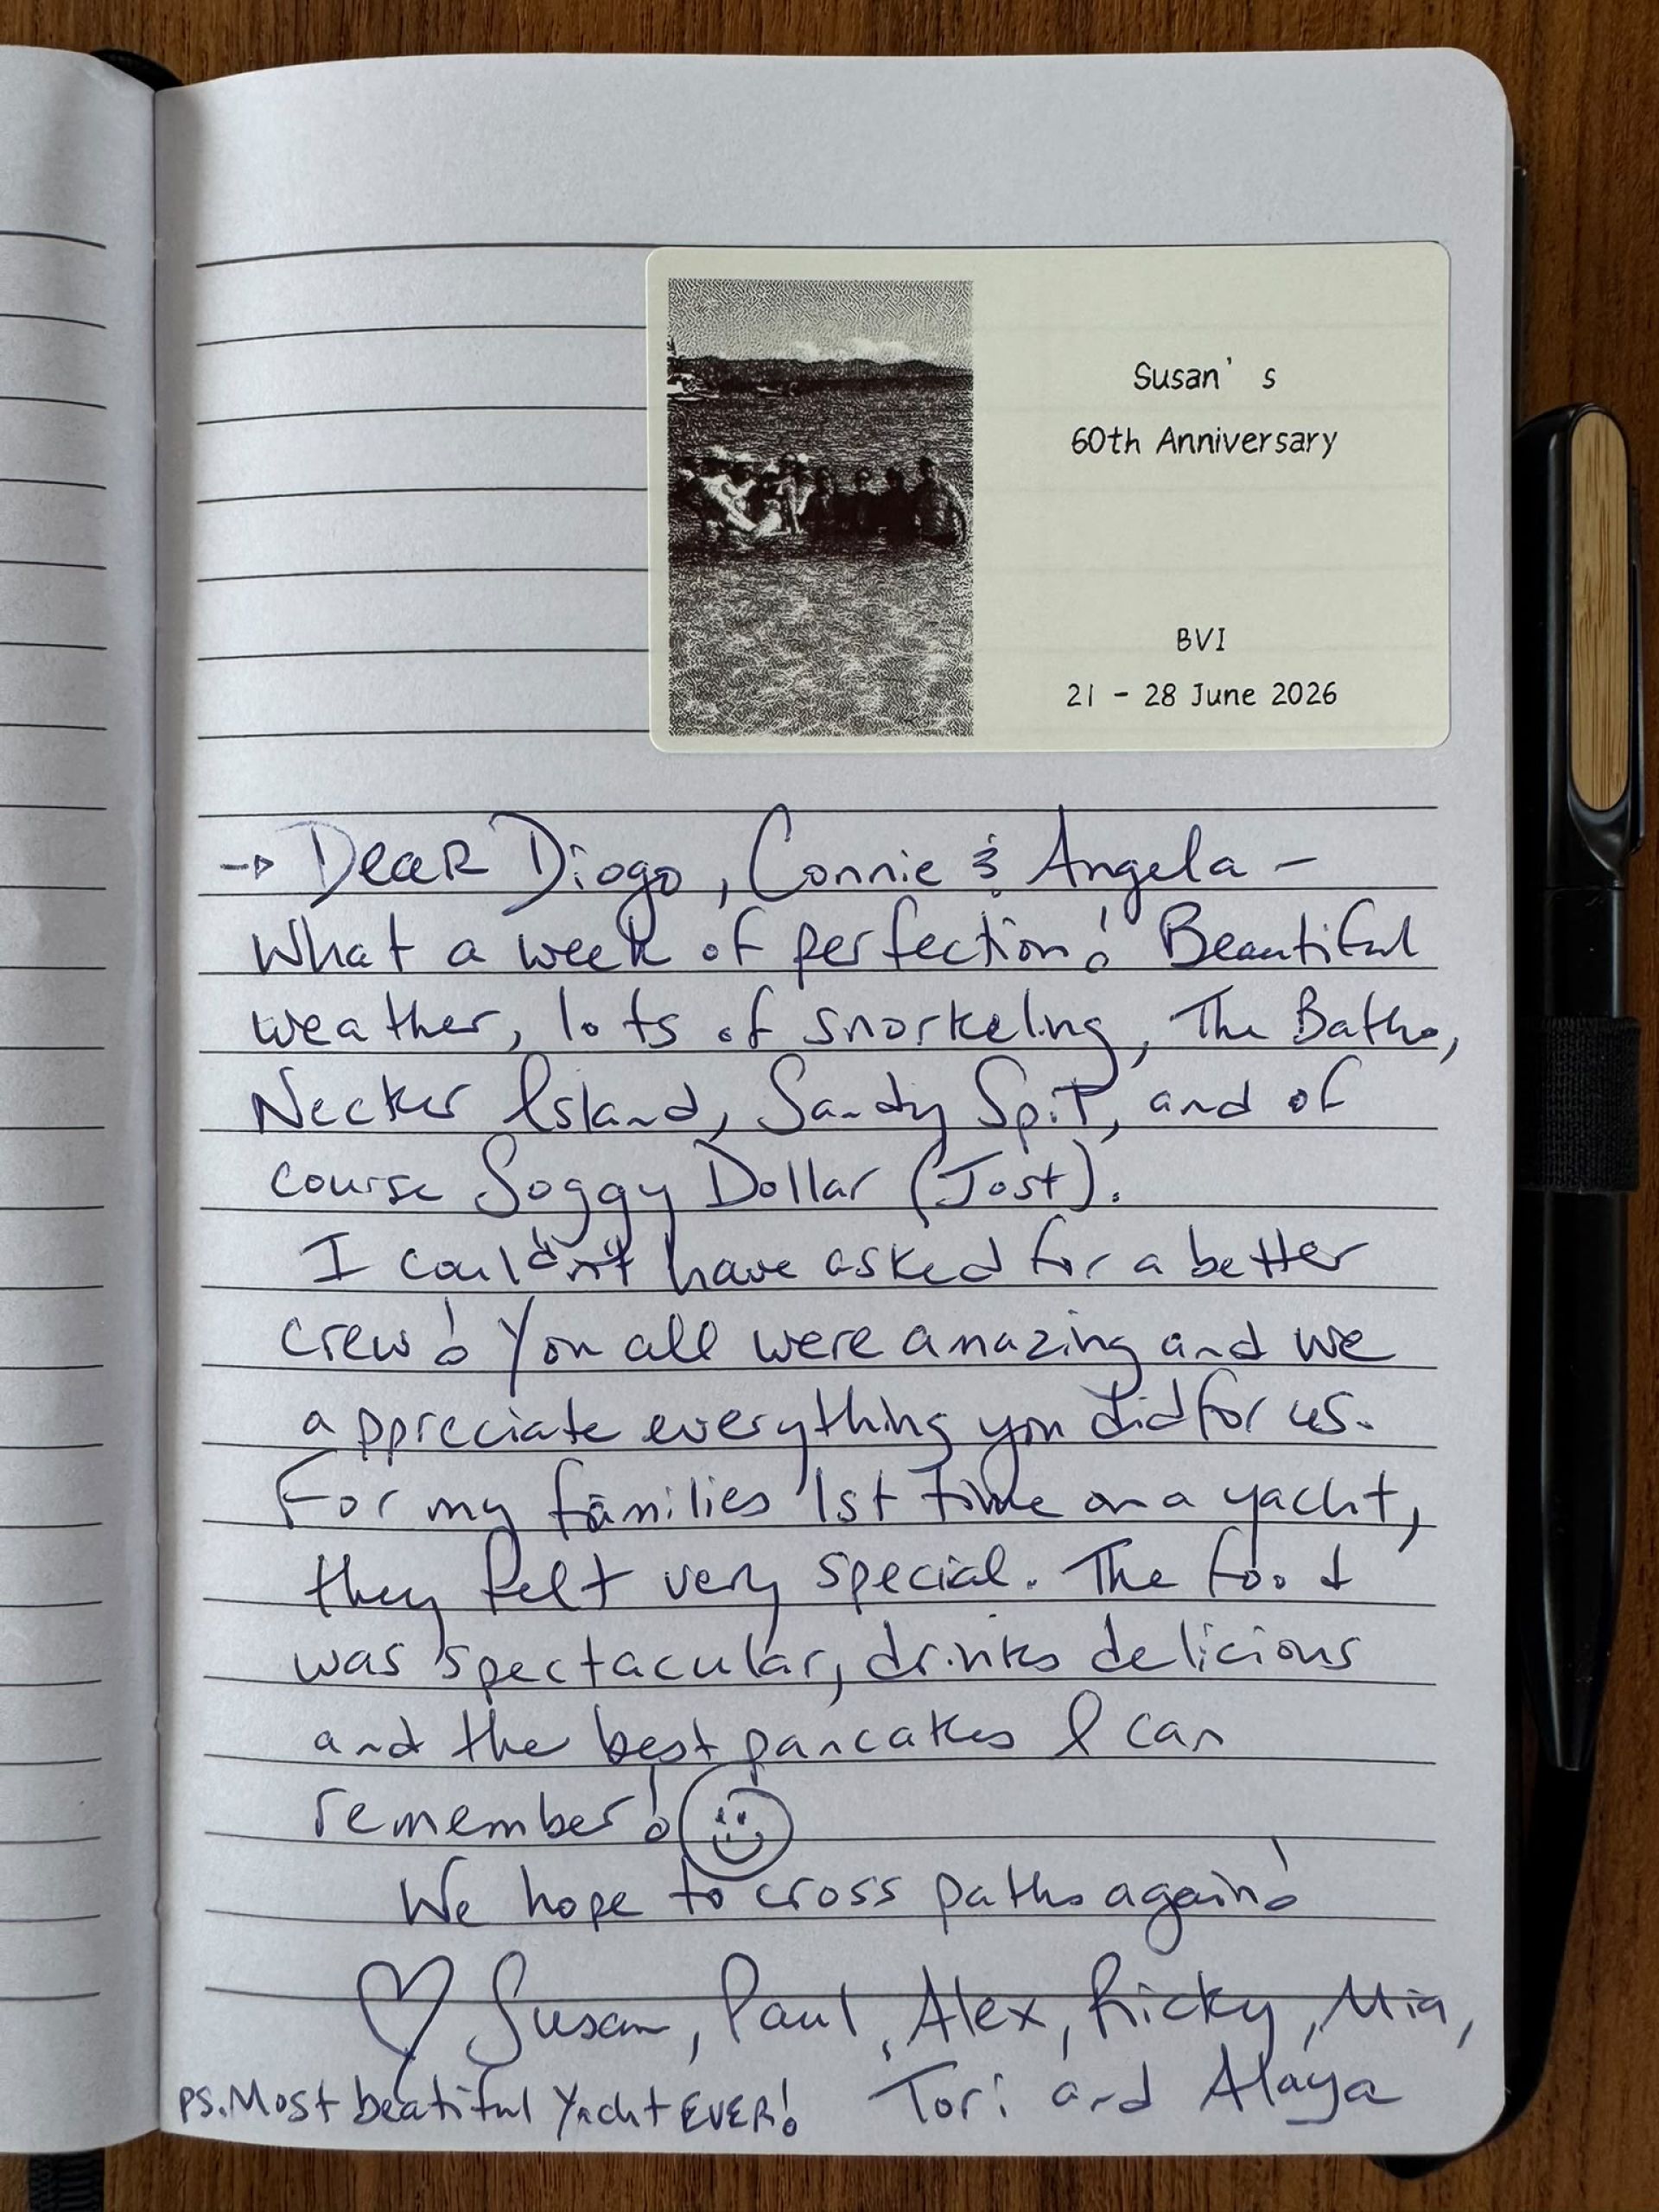 Susan's
60th Anniversary
BVI
21 - 28 June 2026
→ Dear Diogo, Connie & Angela -
What a week of perfection! Beautiful
weather, lots of snorkeling, The Baths,
Necker Island, Sandy Spit, and of
course Soggy Dollar (Jost).
I couldn't have asked for a better
crew! You all were amazing and we
appreciate everything you did for us.
For my families 1st time on a yacht,
they felt very special. The food
was spectacular, drinks delicious
and the best pancakes I can
remember! ☺
We hope to cross paths again!
♡ Susan, Paul, Alex, Ricky, Mia,
Tori and Alaya
PS. Most beatiful Yacht EVER!